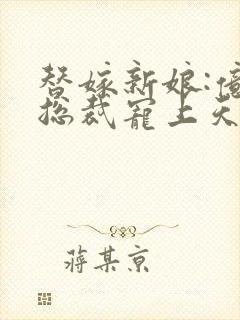 替嫁新娘:億
總裁寵上天
蔣某京